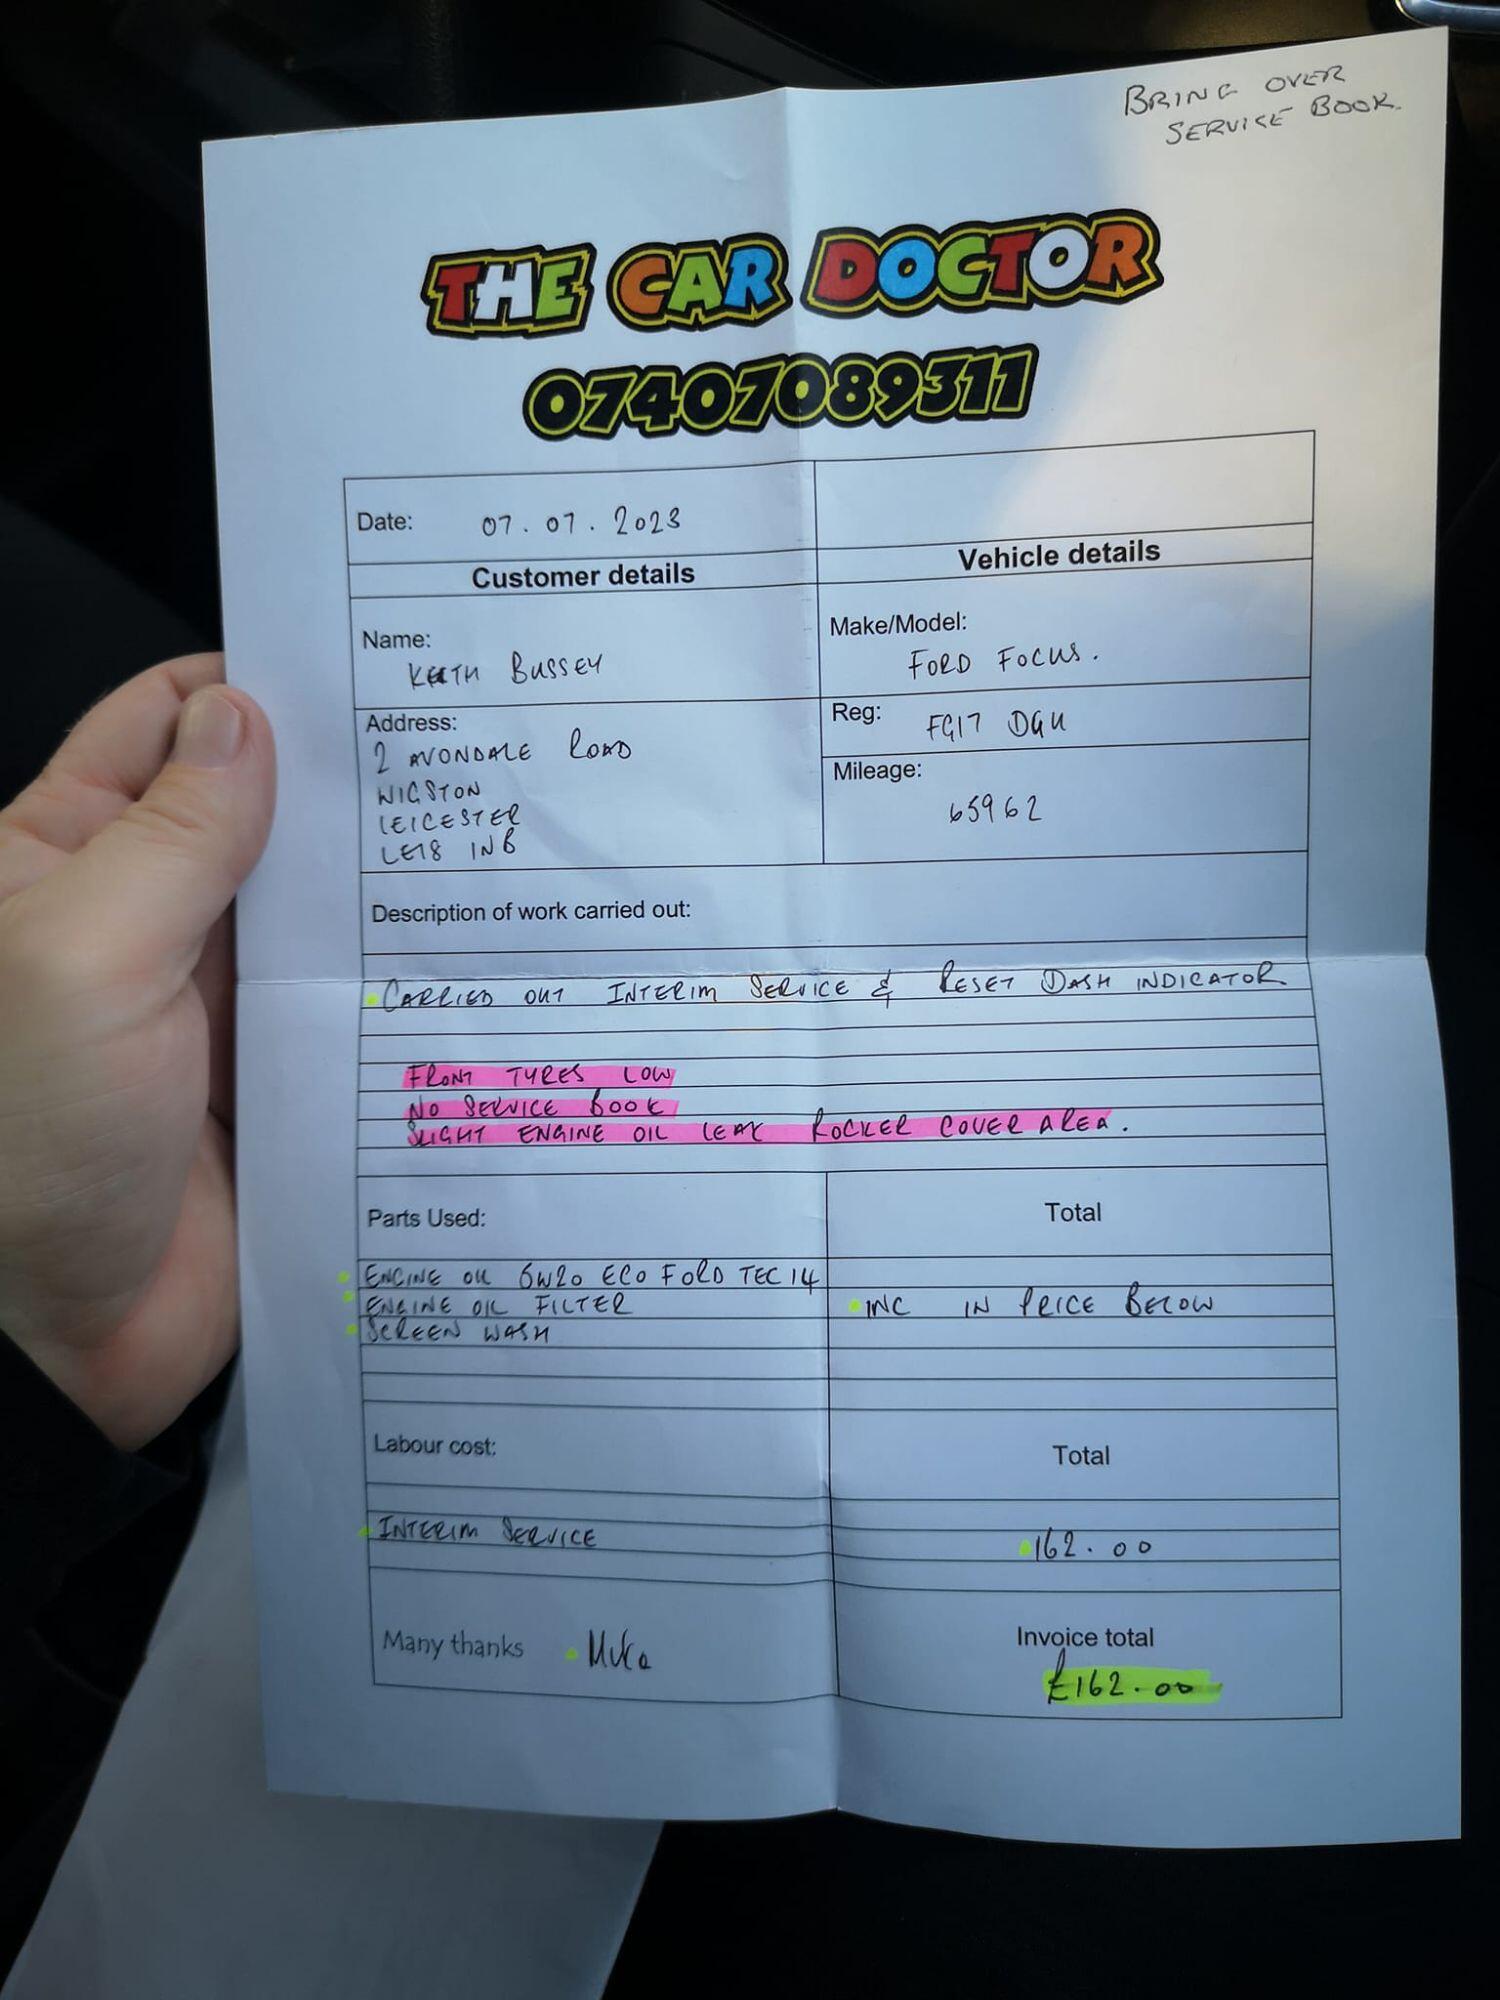 BRING OVER
SERVICE BOOK.
THE CAR DOCTOR
07407089311
Date: 07.07.2023
Customer details
Vehicle details
Name:
KEITH BUSSEY
Make/Model:
FORD FOCUS.
Address:
2 AVONDALE ROAD
WIGSTON
LEICESTER
LE18 1NB
Reg: FG17 DGU
Mileage:
65962
Description of work carried out:
CARRIED OUT INTERIM SERVICE & RESET DASH INDICATOR
FRONT TYRES LOW
NO SERVICE BOOK
SLIGHT ENGINE OIL LEAK ROCKER COVER AREA.
Parts Used:
Total
ENGINE OIL 5W20 ECO FORD TEC 14
ENGINE OIL FILTER
INC IN PRICE BELOW
SCREEN WASH
Labour cost:
Total
INTERIM SERVICE
162.00
Many thanks
Invoice total
£162.00